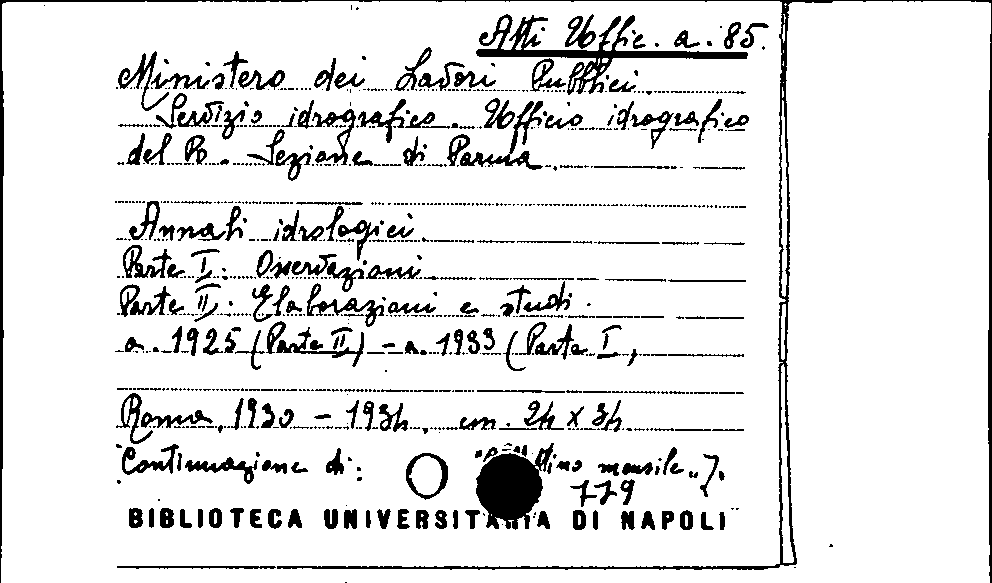 Atti Uffic. a. 85.
Ministero dei Lavori Pubblici.
Servizio idrografico. Ufficio idrografico
del Po. Sezione di Parma.
Annali idrologici.
Parte I: Osservazioni.
Parte II: Elaborazioni e studi.
a. 1925 (Parte II) - a. 1933 (Parte I,
Roma, 1930 - 1934. cm. 24 x 34.
Continuazione di: mensile„].
779
BIBLIOTECA UNIVERSITARIA DI NAPOLI